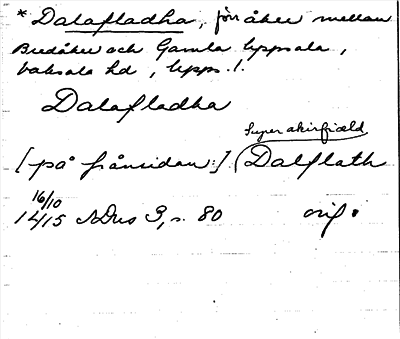 * Dalafladha, förr åker mellan
Bredåker och Gamla Uppsala,
Vaksala hd, Upps. l.
Dalafladha
Super akirfiæld
[på frånsidan:] Dalflath
16/10
1415 SDns 3, s. 80 orig.